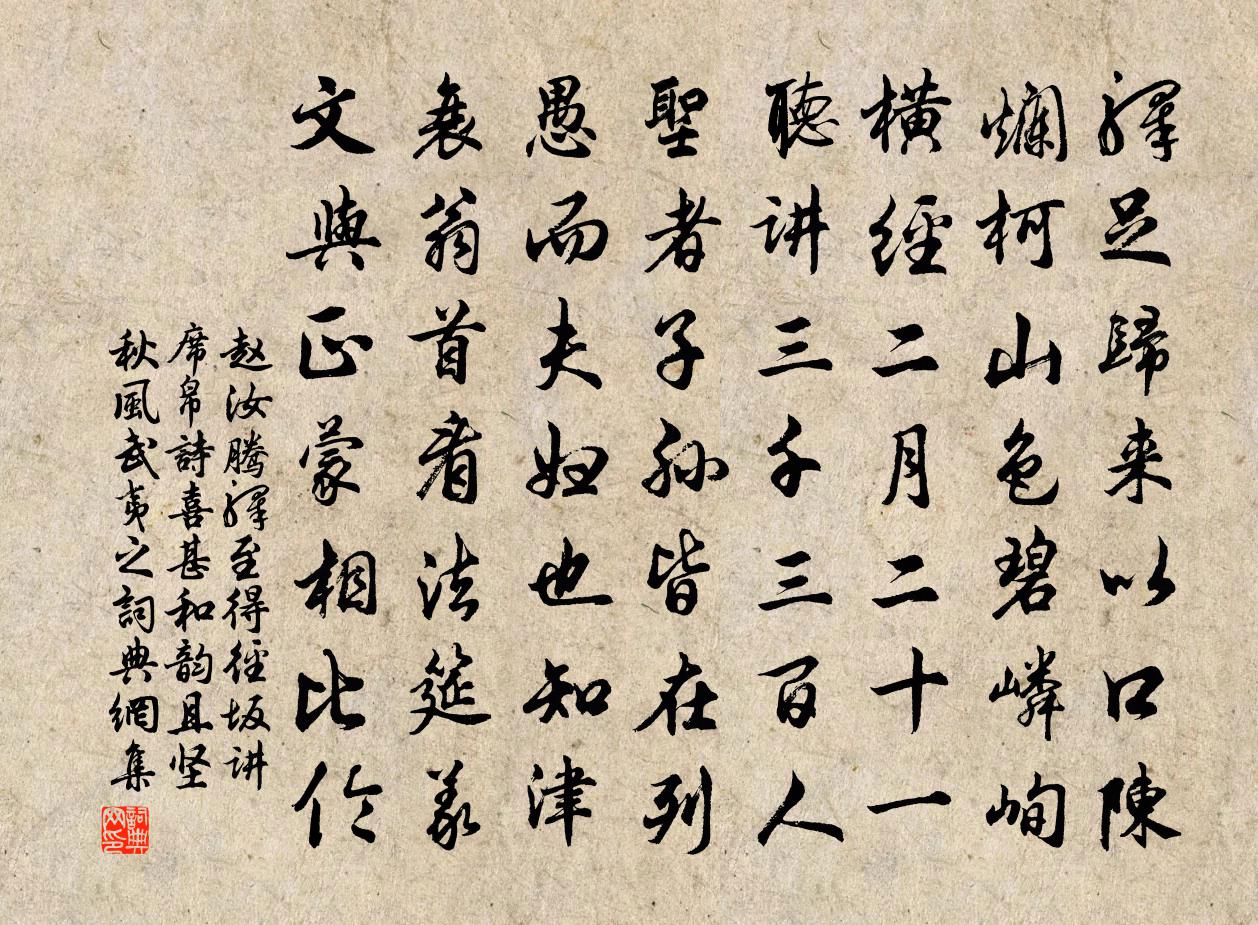 驛足歸来以口陳
爛柯山色碧嶙峋
横經二月二十一
聽讲三千三百人
聖者子孙皆在列
愚而夫妇也知津
衰翁首看法筵義
文與正蒙相比伦
赵汝腾驛至得徑坂讲
席帛詩喜甚和韵且坚
秋風武夷之詞典網集
詞典网印